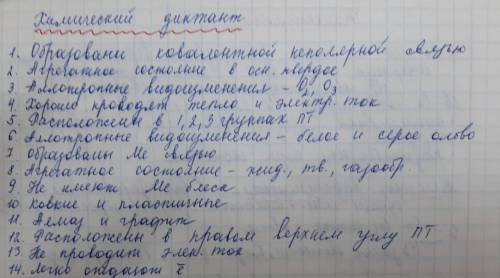 Химический диктант
1. Образованы ковалентной неполярной связью
2. Агрегатное состояние в осн. твердое
3. Аллотропные видоизменения - O₂, O₃
4. Хорошо проводят тепло и электр. ток
5. Расположены в 1, 2, 3 группах ПТ
6 Аллотропные видоизменения - белое и серое олово
7 Образованы Ме связью
8. Агрегатное состояние - жид., тв., газообр.
9. Не имеют Ме блеска
10 Ковкие и пластичные
11. Алмаз и графит
12. Расположены в правом верхнем углу ПТ
13. Не проводит элек. ток.
14. Легко отдают ē